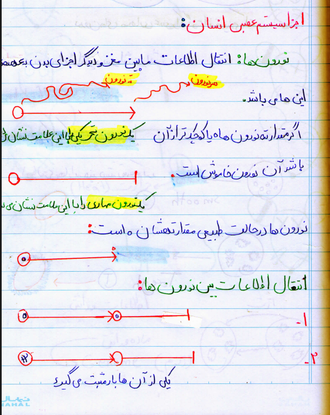 اجزا سیستم عصبی انسان:
نورون ها: انتقال اطلاعات ما بین مغز و دیگر اجزای بدن به عهده
ته نورون سر نورون
این ها می باشد.
اگر مقدار ته نورون ها با کمتر از آن یک نورون تحریکی را با این علامت نشان
باشد آن نورون خاموش است.
یک نورون مهاری را با این علامت نشان می
نورون ها در حالت طبیعی مقدار تهشان ۰ است:
انتقال اطلاعات بین نورون ها:
۱-
۲-
یکی از آن ها بار مثبت می گیرد